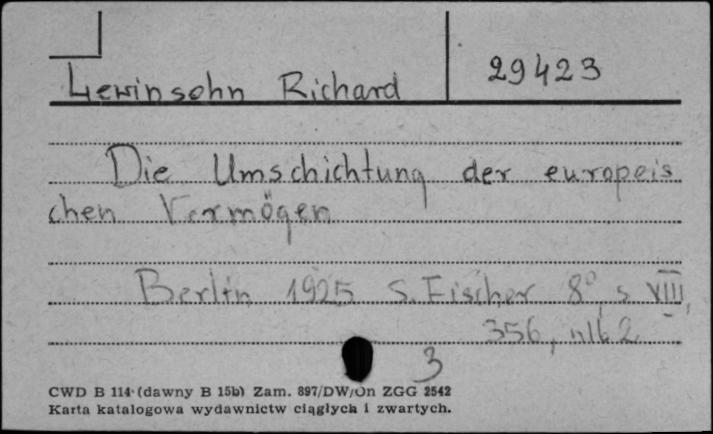 Lewinsohn Richard
29423
Die Umschichtung der europeis
chen Vermögen
Berlin 1925 S. Fischer 8° s VIII,
356, nlb 2
3
CWD B 114 (dawny B 15b) Zam. 897/DW/On ZGG 2542
Karta katalogowa wydawnictw ciągłych i zwartych.